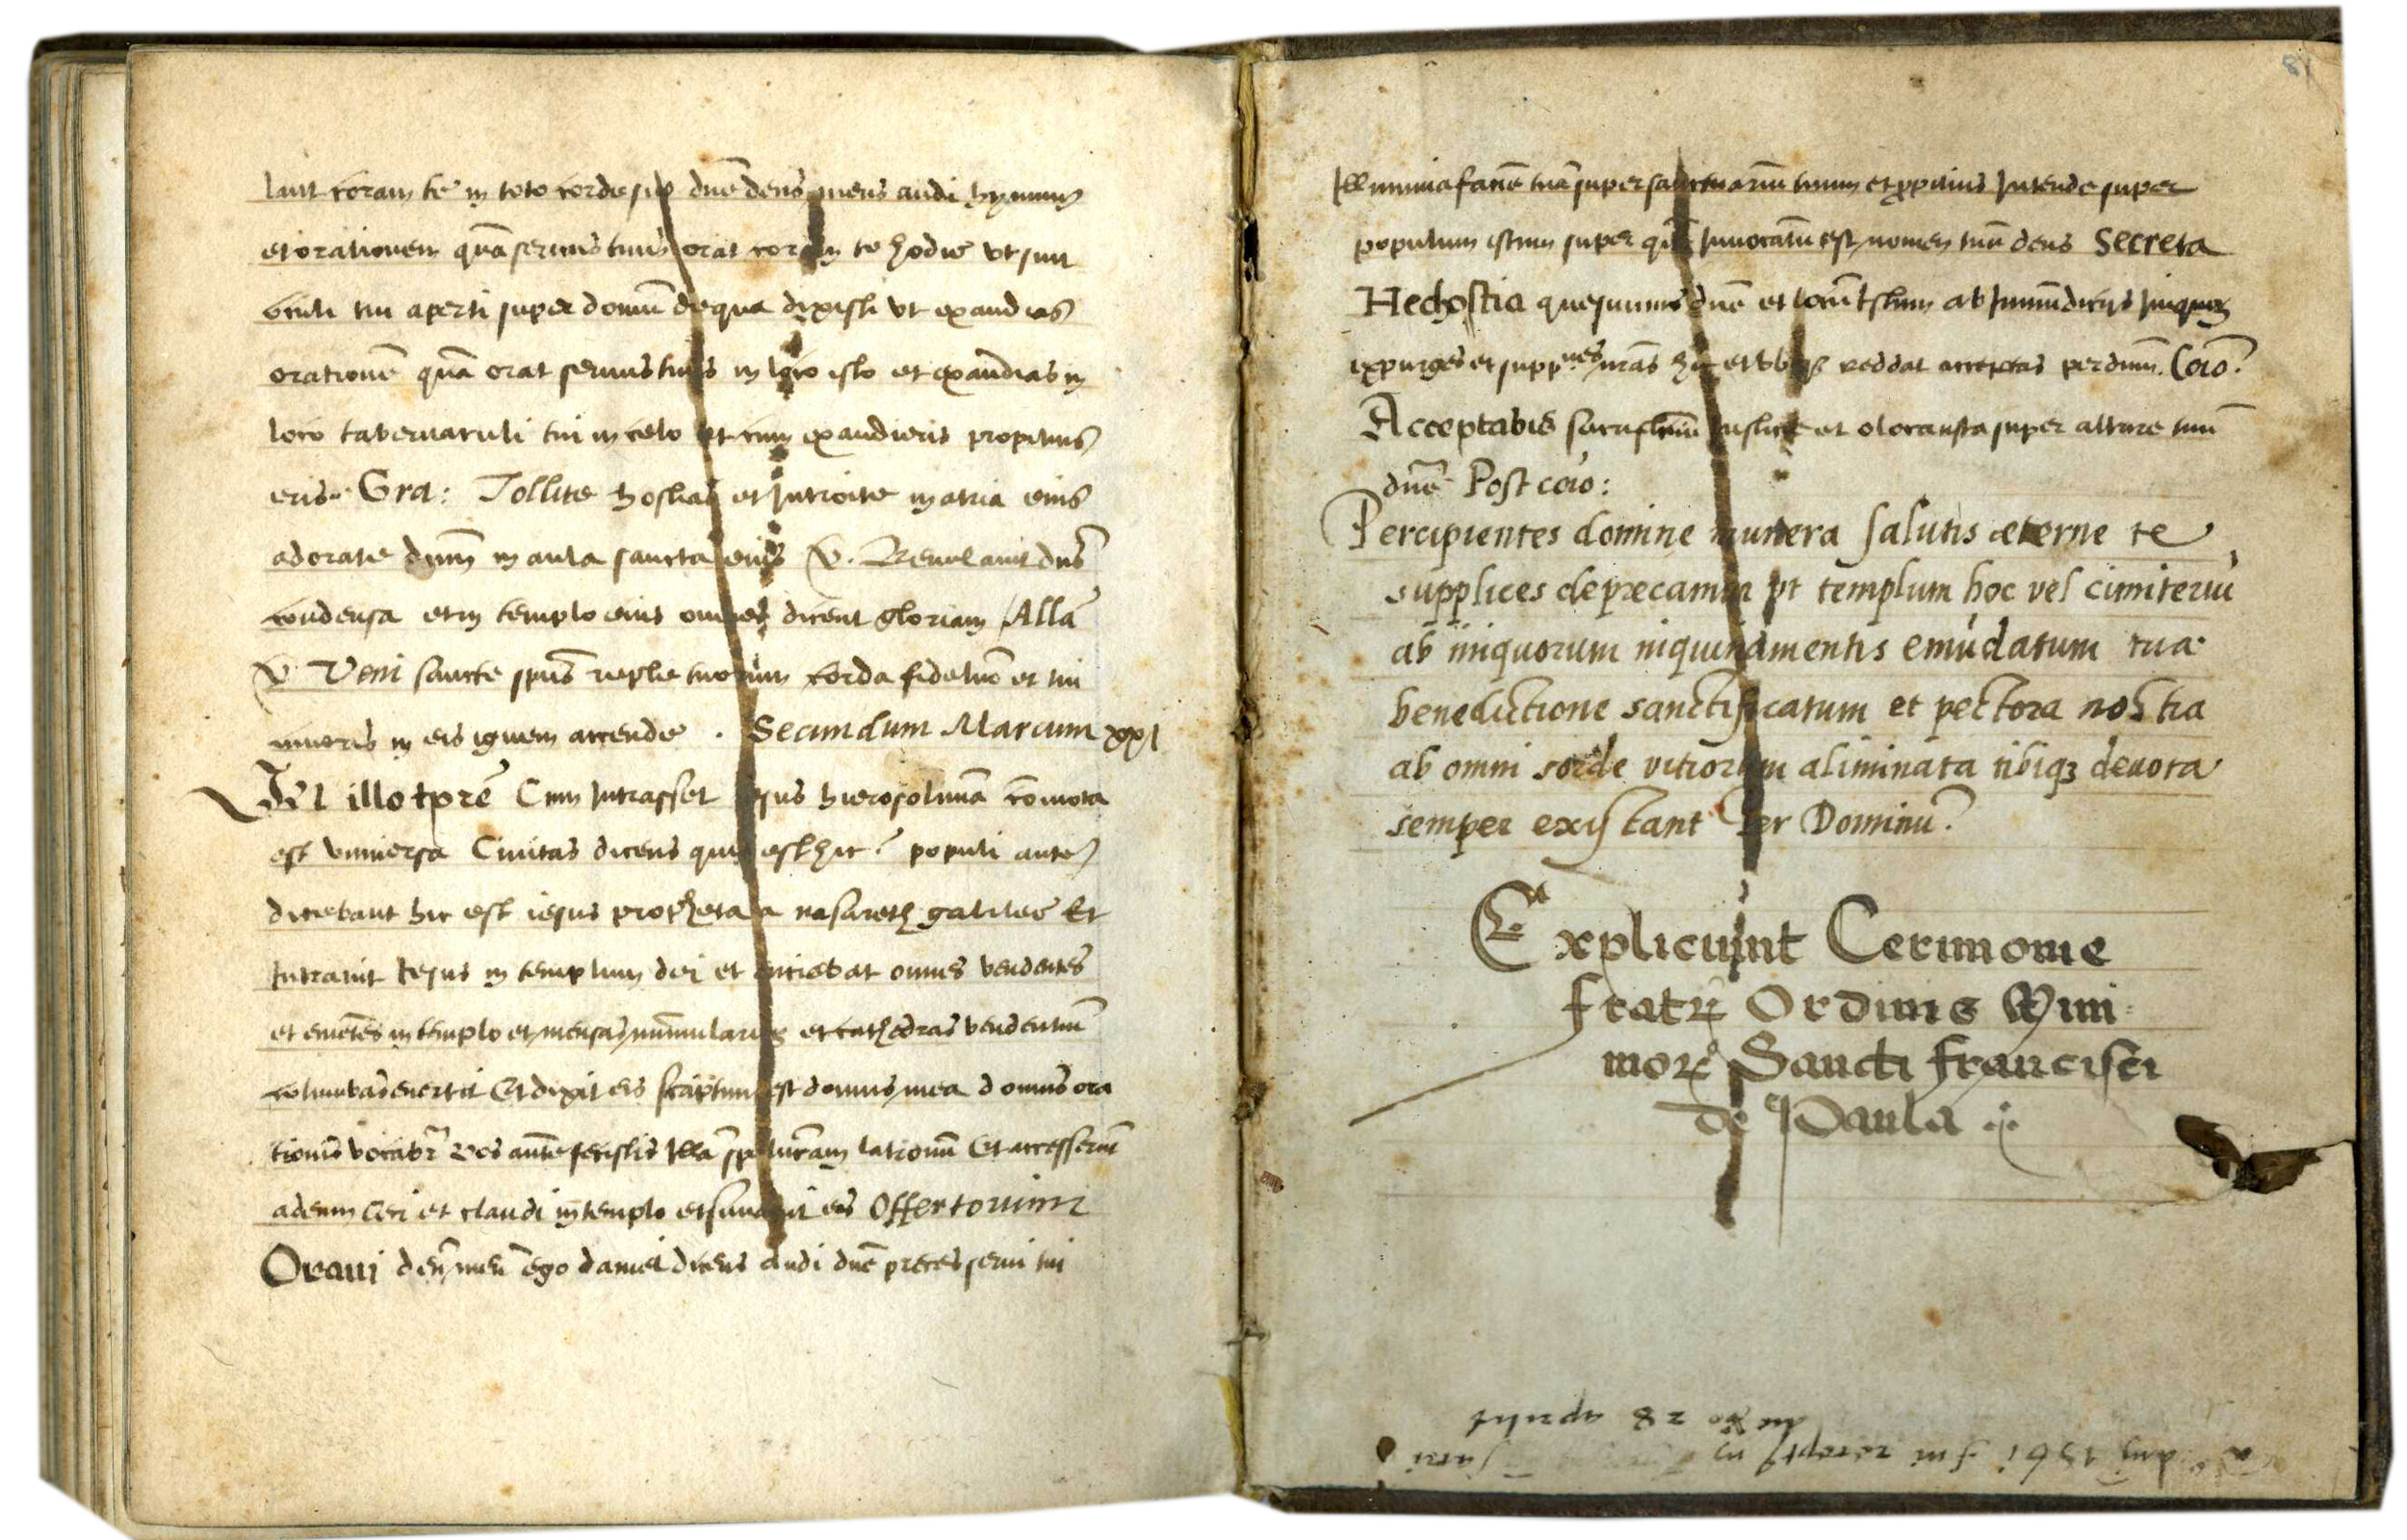 lant coram te in toto corde suo dn̄e deus meus audi hymnum
et orationem quā seruus tuus orat coram te hodie vt sint
oculi tui aperti super domū de qua dixisti vt exaudias
orationē quā orat seruus tuus in loco isto et exaudias in
loco tabernaculi tui in celo et cum exaudieris propitius
eris. Gra: Tollite hostias et Introite in atria eius
adorate dnm̄ in aula sancta eius V. Reuelauit dn̄s
condensa et in templo eius omnes dicent gloriam Alla
V. Veni sancte spūs reple tuorum corda fideliū et tui
amoris in eis ignem accende . Secundum Marcum xxj
In illo tpre Cum Intrasset Iesus hierosolimā cōmota
est vniuersa Ciuitas dicens quis est hic? populi autē
dicebant hic est iesus propheta a nasareth galilee Et
Intrauit Iesus in templum dei et eiciebat omnes vendentes
et emētes in templo et mensas nūmularios et cathedras vendentiū
columbas euertit Et dixit eis scriptum est domus mea domus ora
tionis vocabr̄ vos autē fecistis Illā speluncam latronū Et accesserūt
ad eum ceci et claudi in templo et sanauit eos Offertorium
Oraui deū meū ego daniel dicens audi dn̄e preces serui tui
81
Illumina faciē tuā super sanctuariū tuum et ppitius Intende super
populum istum super quē Inuocatū est nomen tuū deus Secreta
Hec hostia quesumus dn̄e et locū Istum ab Inmūdicijs
expurges et suppnes nrās hic et vbiqȝ reddat acceptas per dnm̄. Coīo.
Acceptabis sacrificiū iustitie et olocausta super altare tuū
dn̄e Post coīo:
Percipientes domine munera salutis æterne te
supplices deprecamur vt templum hoc vel cimiteriū
ab iniquorum niquinamentis emūdatum tua
benedictione sanctificatum et pectora nostra
ab omni sorde vitiorum aliminata tibiqȝ deuota
semper existant Per Dominū.
Expliciunt Cerimonie
fratrꝝ Ordinis Mini
morꝝ Sancti francisci
de Paula
1561 fui
28 aprilis